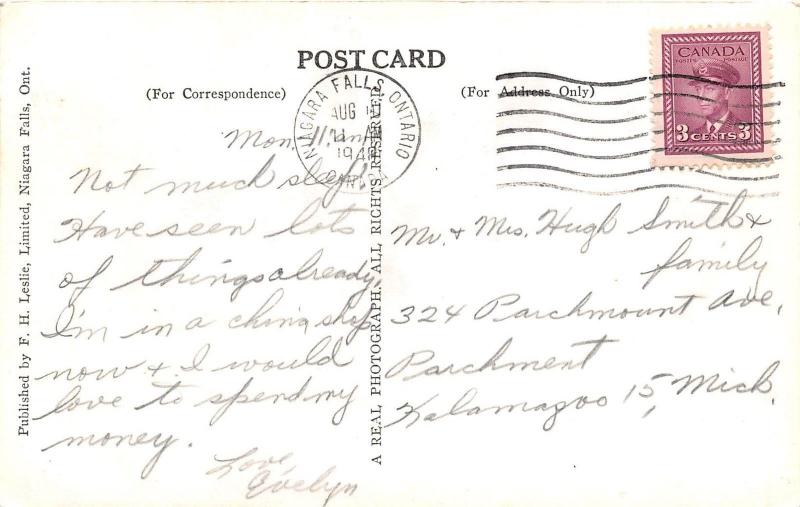 POST CARD
(For Correspondence)
(For Address Only)
Published by F. H. Leslie, Limited, Niagara Falls, Ont.
A REAL PHOTOGRAPH. ALL RIGHTS RESERVED
NIAGARA FALLS, ONTARIO
AUG
11 AM
CANADA
POSTES POSTAGE
3 CENTS 3
Mon.
Not much sleep!
Have seen lots
of things already.
I'm in a china shop
now & I would
love to spend my
money.
Love,
Evelyn
Mr. & Mrs. Hugh Smith &
family
324 Parchmount Ave,
Parchment
Kalamazoo 15, Mich.